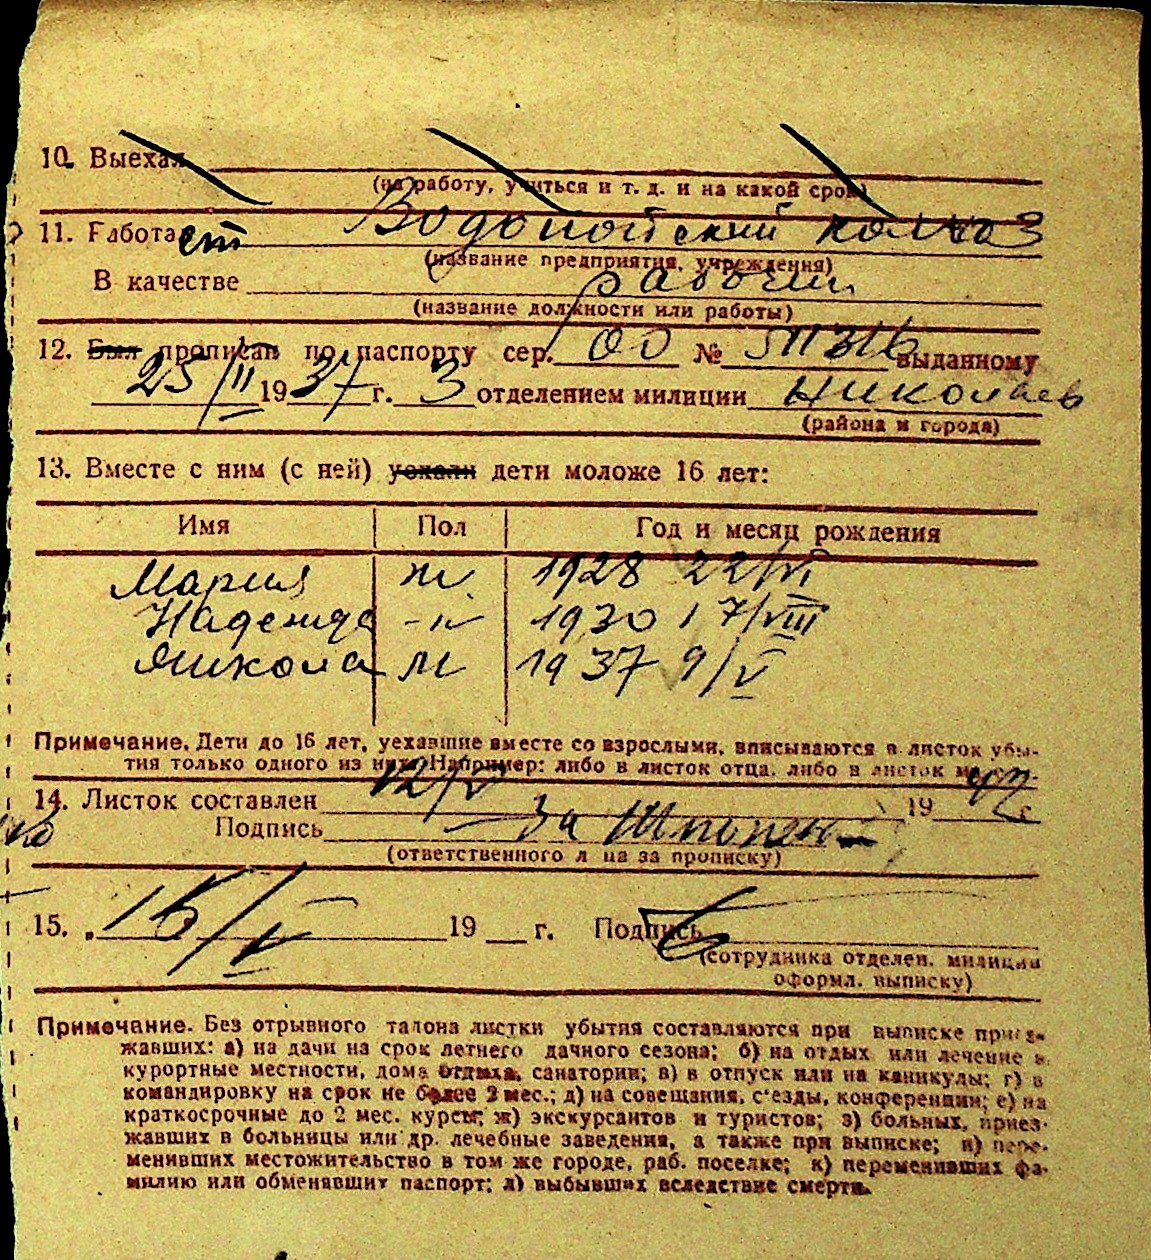 10. Выехал
(на работу, учиться и т. д. и на какой срок)
11. Работает Водопойский колхоз
(название предприятия, учреждения)
В качестве рабочий
(название должности или работы)
12. Был прописан по паспорту сер. ОО № 511316 выданному
25/II 1937 г. 3 отделением милиции Николаев
(района и города)
13. Вместе с ним (с ней) уехали дети моложе 16 лет:
Имя Пол Год и месяц рождения
Мария ж 1928 22/VI
Надежда -"- 1930 17/VIII
Никола м 1937 9/V
Примечание. Дети до 16 лет, уехавшие вместе со взрослыми, вписываются в листок убы-
тия только одного из них. Например: либо в листок отца, либо в листок
14. Листок составлен 12/V 1942 г.
Подпись За
(ответственного лица за прописку)
15. „ 15/V 19 г. Подпись
(сотрудника отделен. милиции
оформл. выписку)
Примечание. Без отрывного талона листки убытия составляются при выписке приез-
жавших: а) на дачи на срок летнего дачного сезона; б) на отдых или лечение в
курортные местности, дома отдыха, санатории; в) в отпуск или на каникулы; г) в
командировку на срок не более 2 мес.; д) на совещания, с'езды, конференции; е) на
краткосрочные до 2 мес. курсы; ж) экскурсантов и туристов; з) больных, приез-
жавших в больницы или др. лечебные заведения, а также при выписке; и) пере-
менивших местожительство в том же городе, раб. поселке; к) переменивших фа-
милию или обменявших паспорт; л) выбывших вследствие смерти.